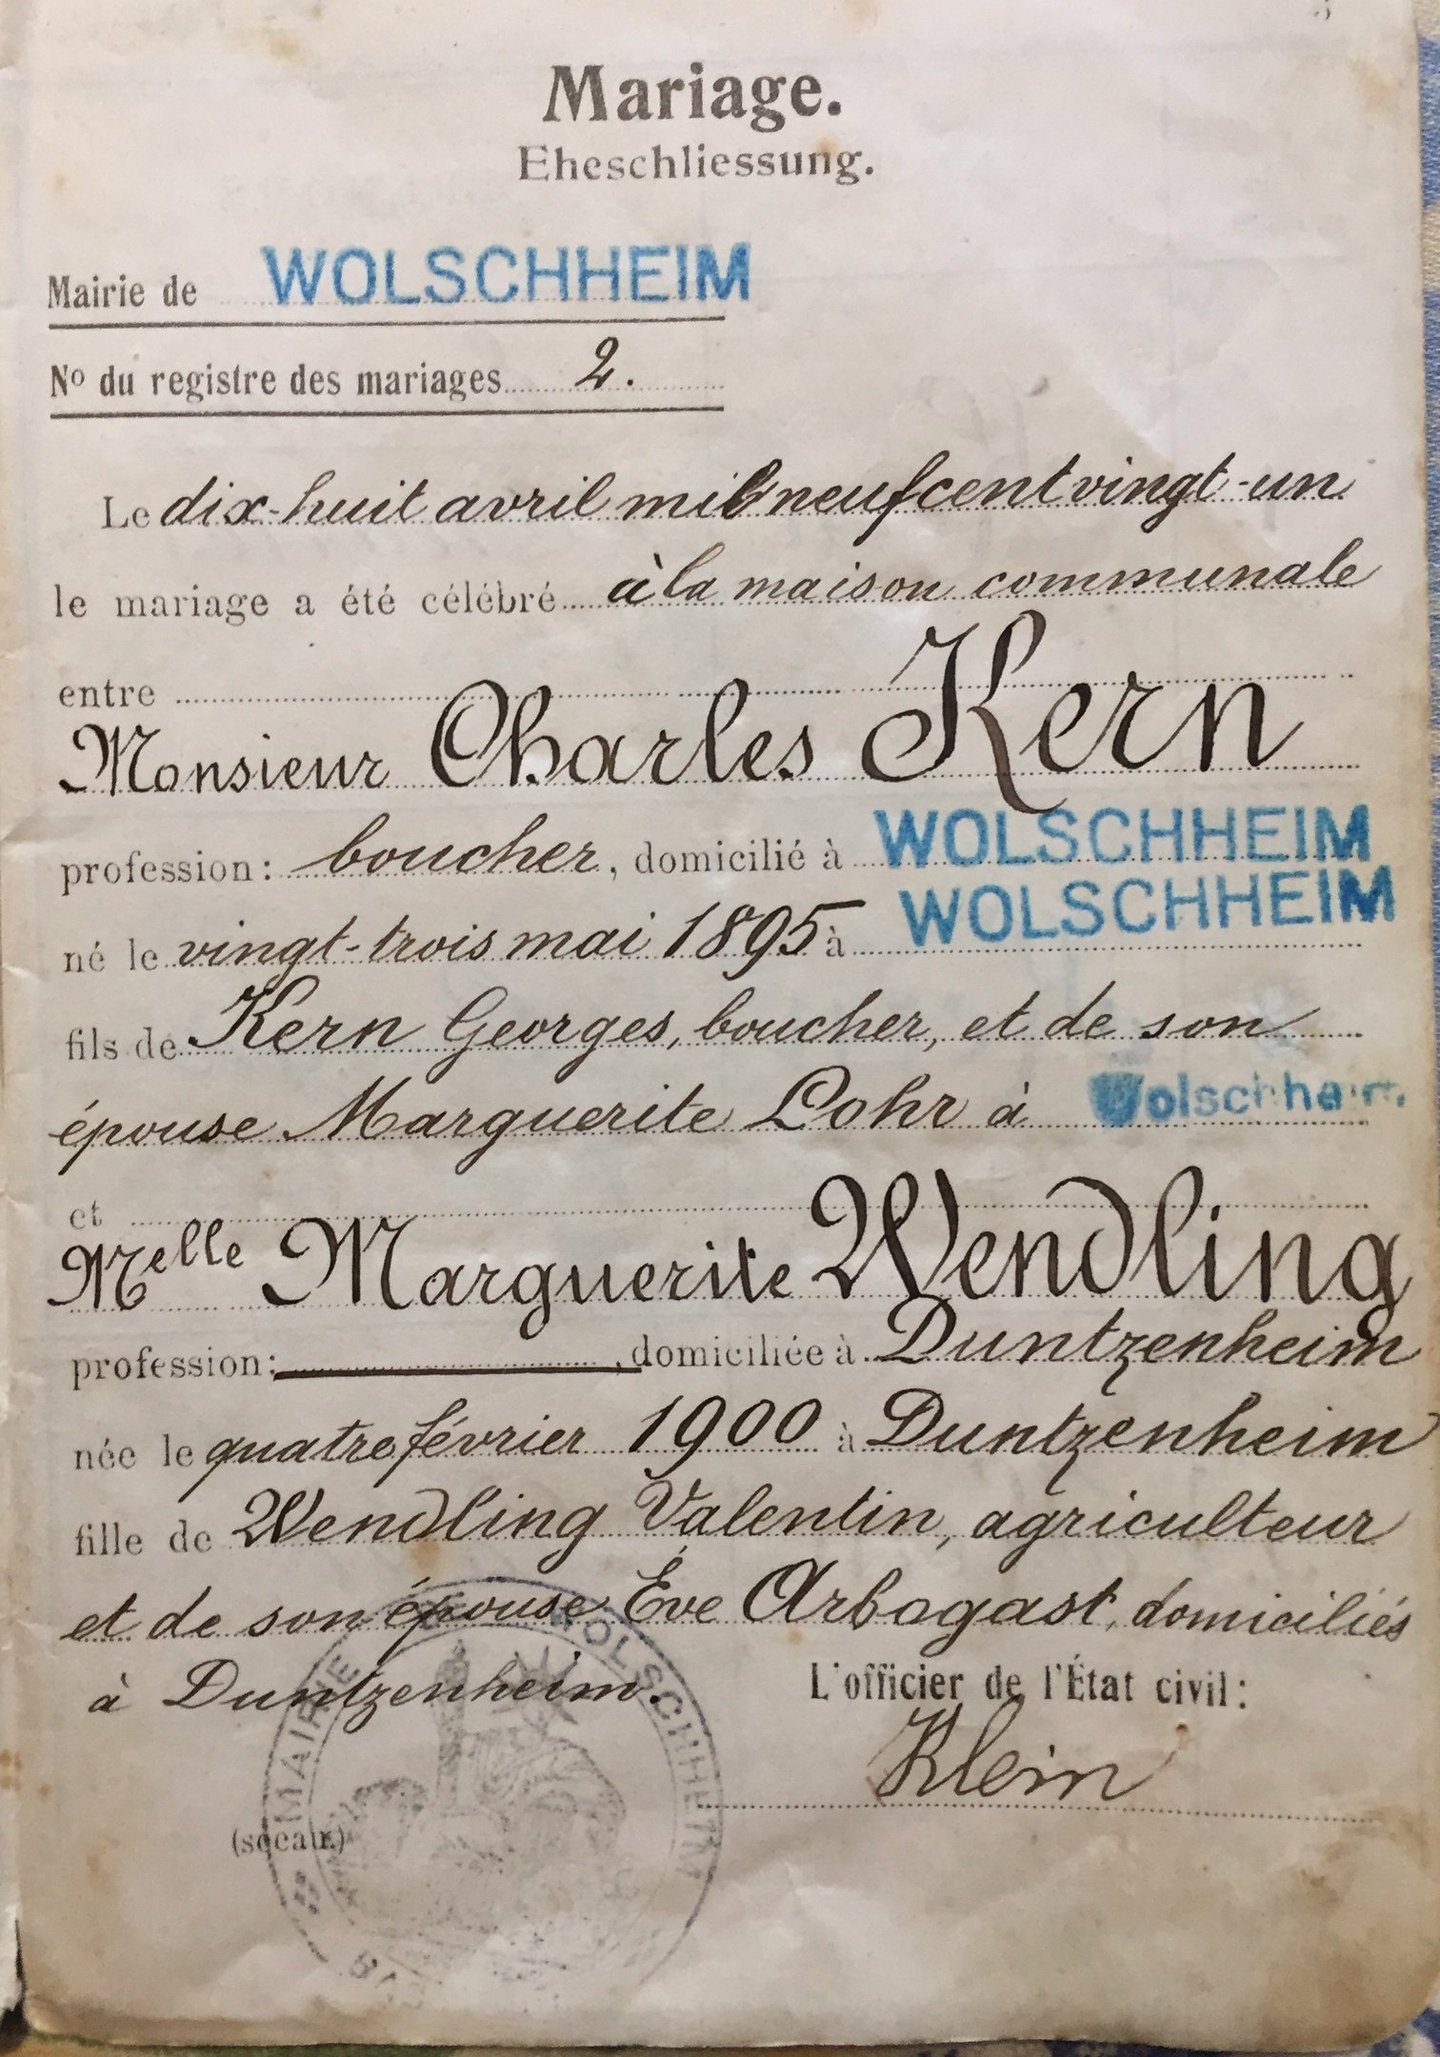 Mariage.
Eheschliessung.
Mairie de WOLSCHHEIM
Nº du registre des mariages 2.
Le dix-huit avril mil neuf cent vingt-un
le mariage a été célébré à la maison communale
entre
Monsieur Charles Kern
profession: boucher, domicilié à WOLSCHHEIM
né le vingt-trois mai 1895 à WOLSCHHEIM
fils de Kern Georges, boucher, et de son
épouse Marguerite Lohr à Wolschheim.
et
Melle Marguerite Wendling
profession: , domiciliée à Duntzenheim
née le quatre février 1900 à Duntzenheim
fille de Wendling Valentin, agriculteur
et de son épouse Ève Arbogast, domiciliés
à Duntzenheim.
L'officier de l'État civil:
Klein
(sceau)
MAIRIE DE WOLSCHHEIM